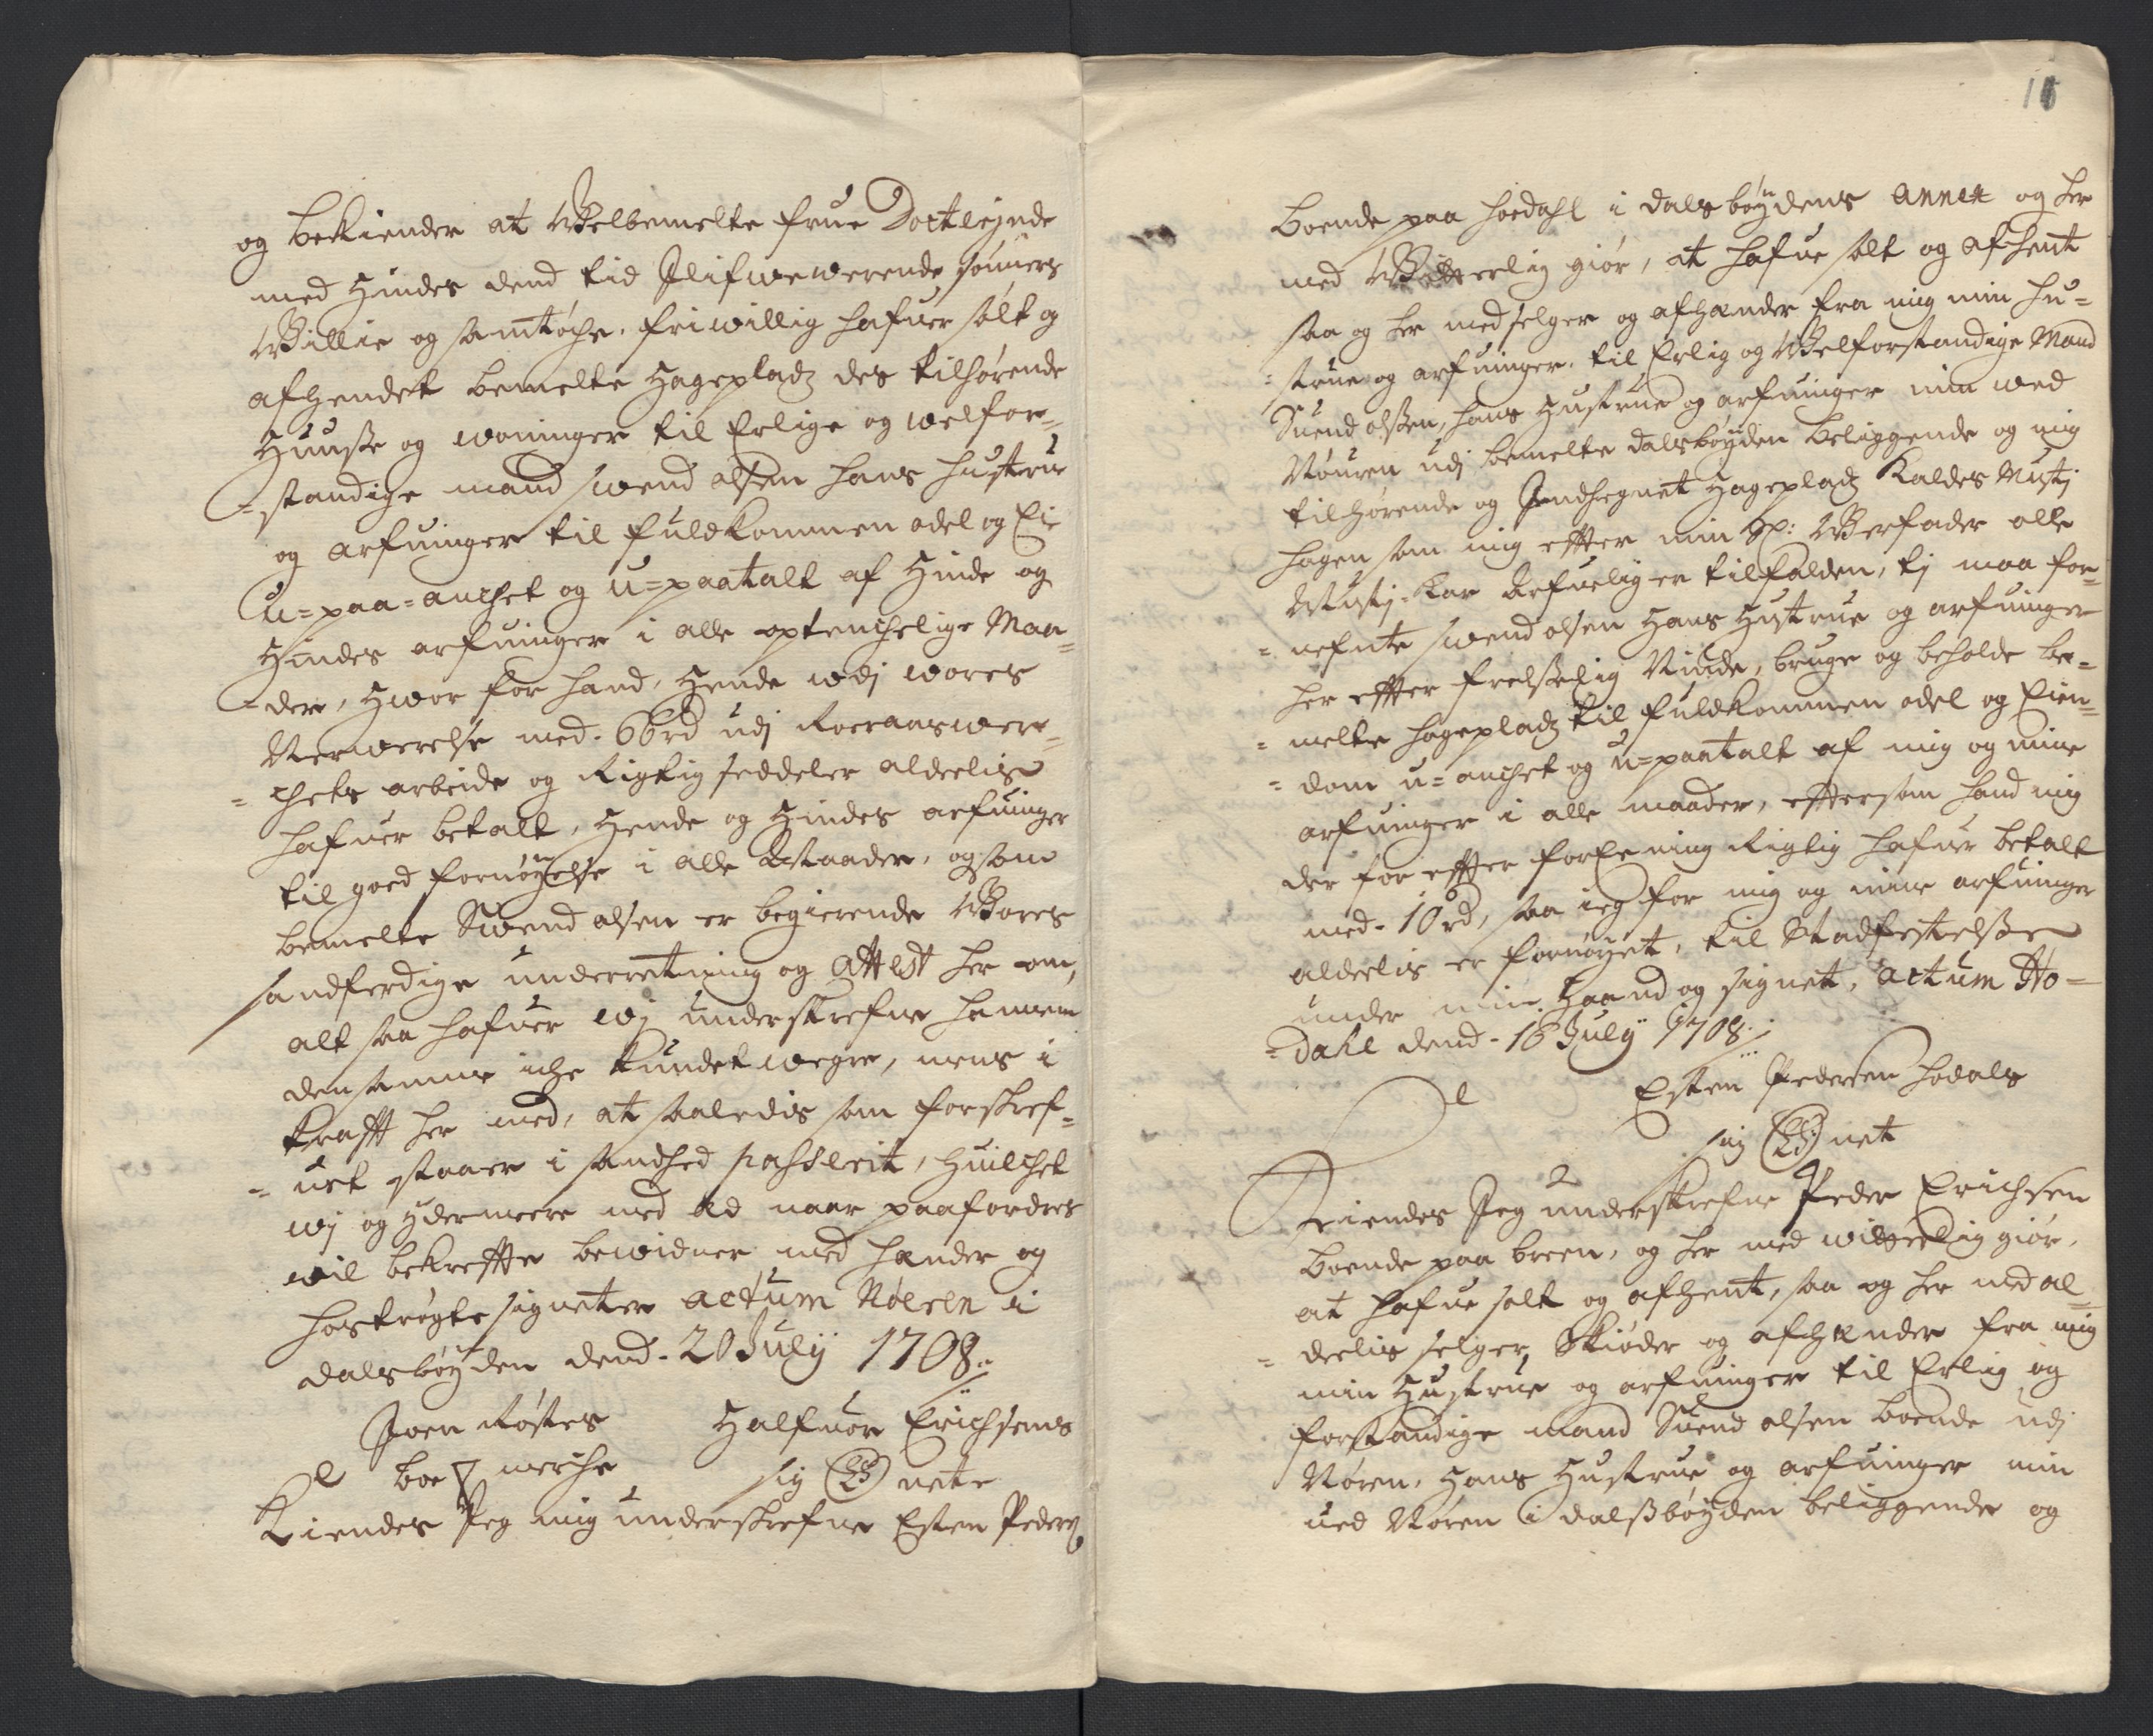 og bekiender at Welbemelte frue Dortlejnde
med Hindes dend tid Jlifwewerende sønners
Willie og samtøche, friwillig hafuer solt og
afhendet bemelte Hageplads des tilhørende
Huusse og woninger til Erlige og welfor=
=standige mand Swend olsen hans hustrue
og arfuinger til fuldkommen odel og Eie
u=paa=anchet og u=paatalt af Hinde og
Hindes arfuinger i alle optenchelige Maa=
=der, Hwor for hand, Hende wdj wores
Nerwerelse med 66 rd udj Roeraaswer=
=chets arbeide og Rigtig seddeler alderlis
hafuer betalt, Hende og Hindes arfuinger
til goed fornøyelse i alle Maader, og som
bemelte Swend olsen er begierende Wores
sandferdige underretning og attest her om,
alt saa hafuer wj underskrefne hannem
den samme iche kundet wegre, mens i
krafft her med, at saaledis som forskref=
=uet staaer i sandhed passerit, huilchet
wj og ydermeere med Ed naar paafordres
wil bekreffte bewidner med hænder og
hostrøgte signeter actum Nøeren i
dalsbøyden dend 20 July 1708
Joen Røstes Halfuor Erichsens
boe merche sig LS nete
Kiendes Jeg mig underskrefne Esten Peders
11
boende paa hoedahl i dalsbøydens annex og her
med Witterlig giør, at hafue solt og afhent
saa og her med selger og afhænder fra mig min hu=
=strue og arfuinger, til Erlig og Welforstandige Mand
Suend olssen, hans Hustrue og arfuinger min wed
Nøuren udj bemelte dalsbøyden beliggende og mig
tilhørende og Jndhegnet Hageplads kaldes Mustj
hagen som mig effter min Sl: Werfader olle
Mustj-kar arfuelig er tilfalden, tj maa for=
=nefnte Swend olsen Hans Hustrue og arfuinger
her effter frelsselig Niude, bruge og beholde be=
=melte hageplads til fuldkommen odel og Eien=
=dom u=anchet og u=paatalt af mig og mine
arfuinger i alle maader, efftersom hand mig
der for effter forEening Rigtig hafuer betalt
med 10 rd, saa ieg for mig og mine arfuinger
alderlis er fornøyet, til Stadfestelsse
under min Haand og signet, actum Ho=
=dahl dend 16 July 1708
Esten Pedersen Hodals
sig LS net
Kiendes Jeg underskrefne Peder Erichsen
boende paa breen, og her med witterlig giør,
at hafue solt og afhent, saa og her med al=
=derlis selger, Skiøder og afhænder fra mig
min Hustrue og arfuinger til Erlig og
forstandige mand Suend olsen boende udj
Nøren, Hans Hustrue og arfuinger min
ued Nøren i dalssbøyden beliggende og